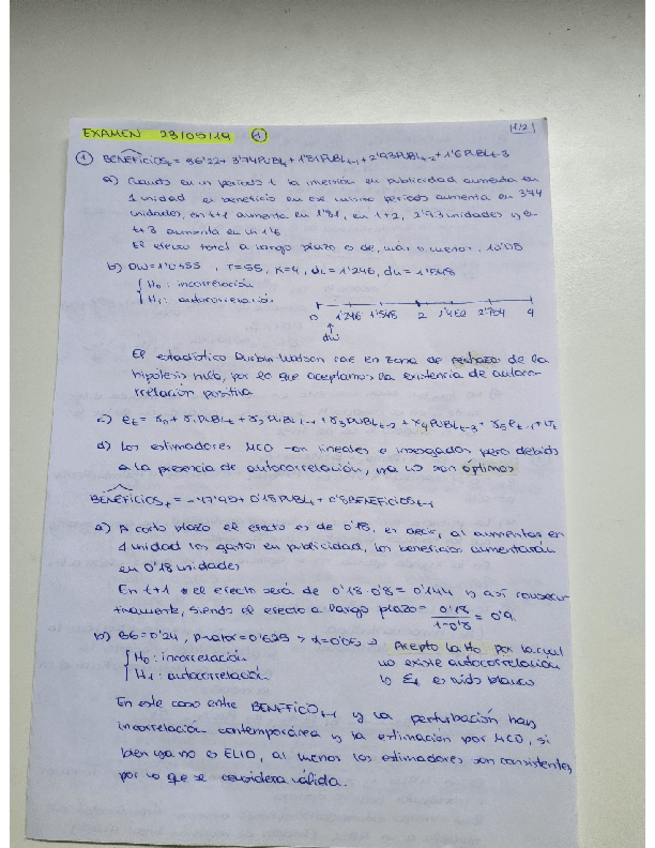 EXAMEN 23/05/19 1
1/2
1 BENEFICIOSt = 96'22 + 3'74PUBLt + 1'81PUBLt-1 + 2'93PUBLt-2 + 1'6PUBLt-3
a) Cuando en un periodo t la inversión en publicidad aumenta en
1 unidad el beneficio en ese mismo periodo aumenta en 3'74
unidades, en t+1 aumenta en 1'81, en t+2, 2'93 unidades y en
t+3 aumenta en un 1'6
El efecto total a largo plazo es de, más o menor, 10'08
b) DW = , T=55, K=4, dL = 1'246, du = 1'548
H0: incorrelación
H1: autocorrelación
0 1'246 1'548 2 1'452 2'754 4
dw
El estadístico Durbin Watson cae en zona de rechazo de la
hipótesis nula, por lo que aceptamos la existencia de autoco-
rrelación positiva
c) et = γ0 + γ1PUBLt + γ2PUBLt-1 + γ3PUBLt-2 + γ4PUBLt-3 + γ5et-1 + vt
d) Los estimadores MCO son lineales e insesgados pero debido
a la presencia de autocorrelación, ya no son óptimos
BENEFICIOSt = -47'40 + 0'18PUBLt + 0'8BENEFICIOSt-1
a) A corto plazo el efecto es de 0'18, es decir, al aumentar en
1 unidad los gastos en publicidad, los beneficios aumentarán
en 0'18 unidades
En t+1 el efecto será de 0'18·0'8 = 0'144 y así consecu-
tivamente, siendo el efecto a largo plazo = 0'18/1-0'8 = 0'9.
b) BG = 0'24, p-valor = 0'625 > α = 0'05 → Acepto la H0 por lo cual
H0: incorrelación no existe autocorrelación
H1: autocorrelación y Et es ruido blanco
En este caso entre BENEFICIOt-1 y la perturbación hay
incorrelación contemporánea y la estimación por MCO, si
bien ya no es ELIO, al menos los estimadores son consistentes,
por lo que se considera válida.